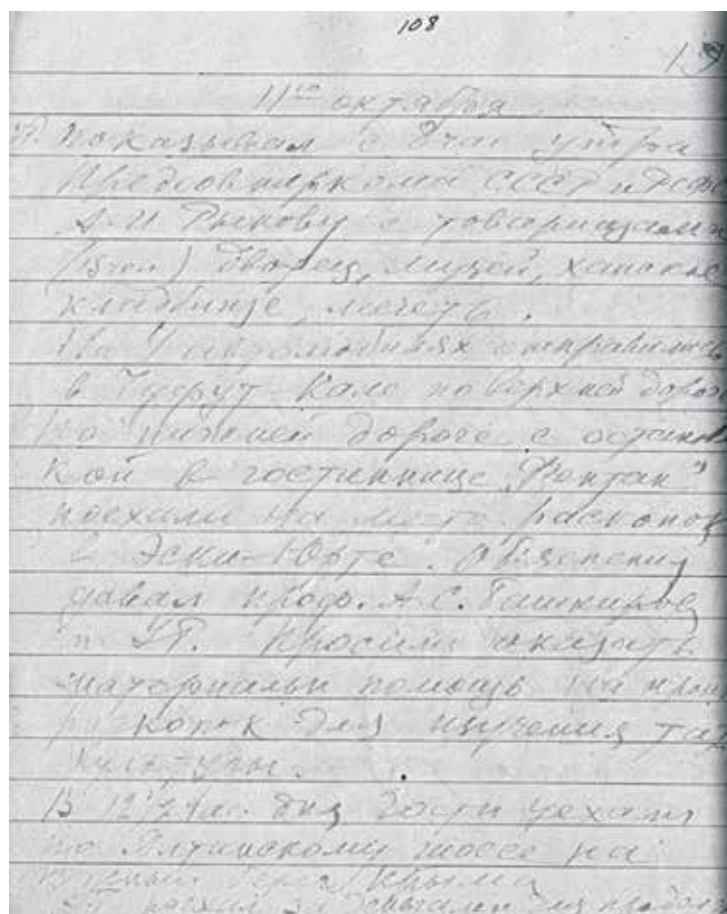 108
19
11го октября
показывал с 8 час утра
Предсовнаркома СССР и РСФС
А.И Рыкову с товарищами
(15 чел) дворец, музей, ханское
кладбище, мечеть.
На 4 автомобилях отправились
в Чуфут-Кале по верхней дорог
По нижней дороге с останов
кой в гостиннице "Фонтан"
поехали на место раскопок
в Эски-Юрте. Объяснения
давал проф. А.С. Башкиров
и УБ. Просили оказать
материальн помощь на
для изучения тат
культуры.
В 12 1/2 час. дня гости уехали
по Ялтинскому шоссе на
Южный берег Крыма